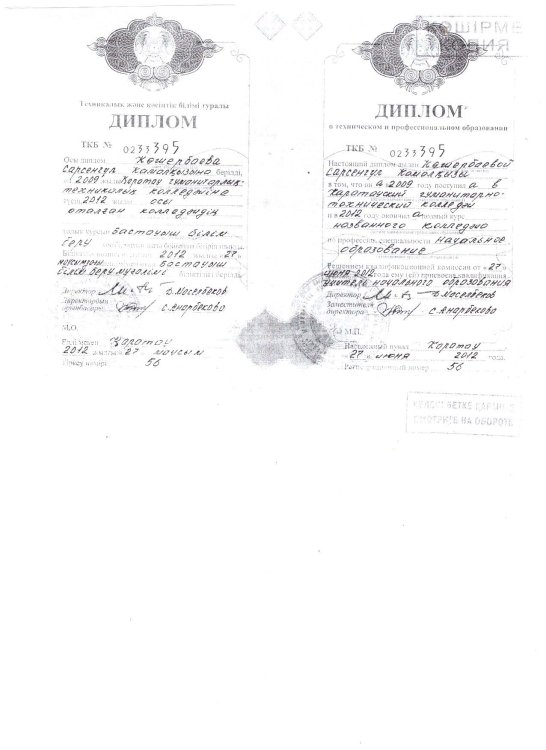 КӨШІРМЕ
КОПИЯ
Техникалық және кәсіптік білімі туралы
ДИПЛОМ
ТКБ № 0233395
Осы диплом Көшербаева
Сарсенгул Камалқызына берілді,
ол 2009 жылы Қаратау гуманитарлық-
техникалық колледжіне
түсіп, 2012 жылы осы
аталған колледждің
толық курсын бастауыш білім
беру
2012 жылғы «27»
бастауыш
білім беру мұғалімі біліктілігі берілді
Директор Б.Масербеков
Директордың
орынбасары С.Анарбекова
М.О.
Елді мекен Қаратау
2012 жылғы «27» маусым
Тіркеу нөмірі 56
ДИПЛОМ
о техническом и профессиональном образовании
ТКБ № 0233395
Настоящий диплом выдан Көшербаевой
Сарсенгул Камалқызы
в том, что он а 2009 году поступил а в
Каратауский гуманитарно-
технический колледж
и в 2012 году окончил а полный курс
названного колледжа
по профессии, специальности начальное
образование
Решением квалификационной комиссии от «27»
июня 2012 года ему (ей) присвоена квалификация
учителя начального образования
Директор Б.Масербеков
Заместитель
директора С.Анарбекова
М.П.
Населенный пункт Каратау
«27» июня 2012 года.
Регистрационный номер 56
СМОТРИТЕ НА ОБОРОТЕ